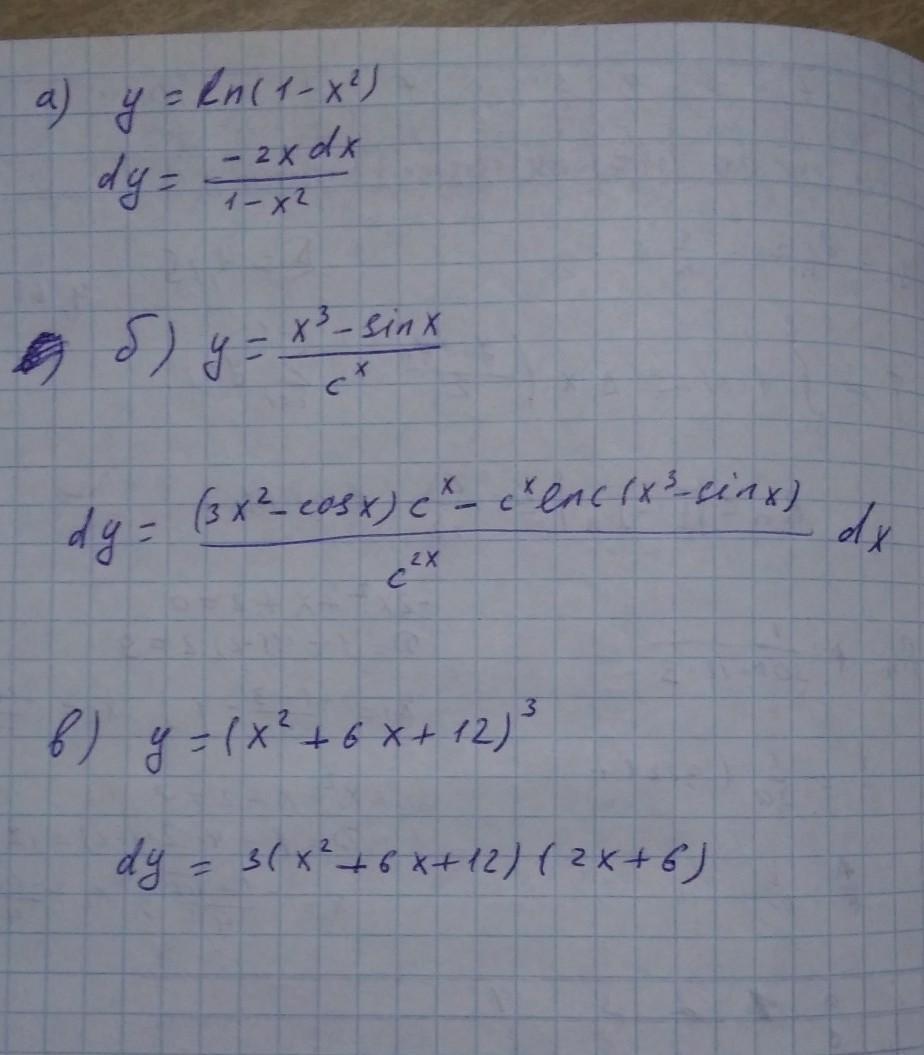 а) y = ln(1-x²)
dy = -2x dx / 1-x²
б) y = x³-sinx / c^x
dy = (3x²-cosx)c^x - c^x lnc(x³-sinx) / c^2x dx
в) y = (x²+6x+12)³
dy = 3(x²+6x+12)(2x+6)